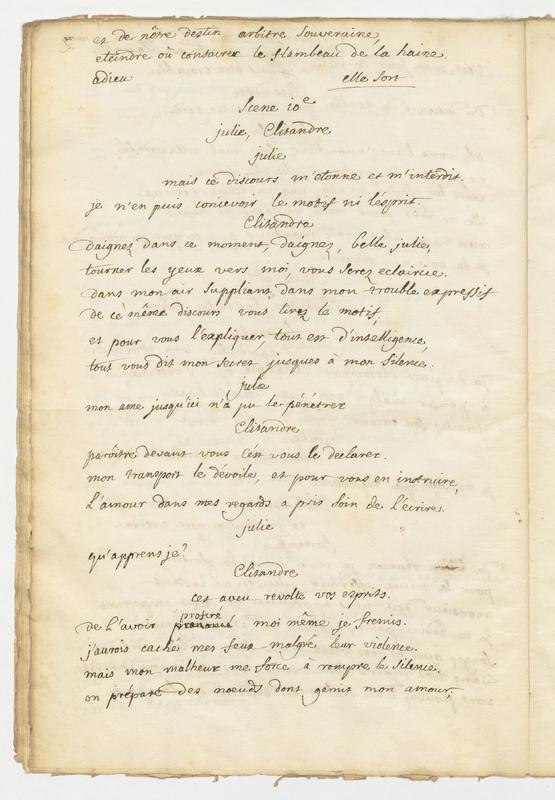 et de nôtre destin arbitre souveraine,
eteindre où consacrer le flambeau de la haine
adieu elle sort
Scene 10e
julie, Clitandre
julie
mais ce discours m'etonne et m'interdit.
je n'en puis concevoir le motif ni l'esprit.
Clitandre
daignez dans ce moment, daignez, belle julie,
tourner les yeux vers moi, vous serez eclaircie.
dans mon air suppliant dans mon trouble expressif
de ce même discours vous lirez le motif,
et pour vous l'expliquer, tout est d'intelligence,
tout vous dit mon secret jusques à mon silence.
julie
mon ame jusqu'ici n'a pu le pénétrer
Clitandre
parôitre devant vous c'est vous le declarer.
mon transport le dévoile, et pour vous en instruire,
L'amour dans mes regards a pris soin de l'écrire.
julie
qu'apprens je?
Clitandre
cet aveu revolte vos esprits.
proferé
de L'avoir prononcé moi même je fremis.
j'aurois caché mes feux malgré leur violence.
mais mon malheur me force à rompre le silence.
on prépare des noeuds dont gemit mon amour,